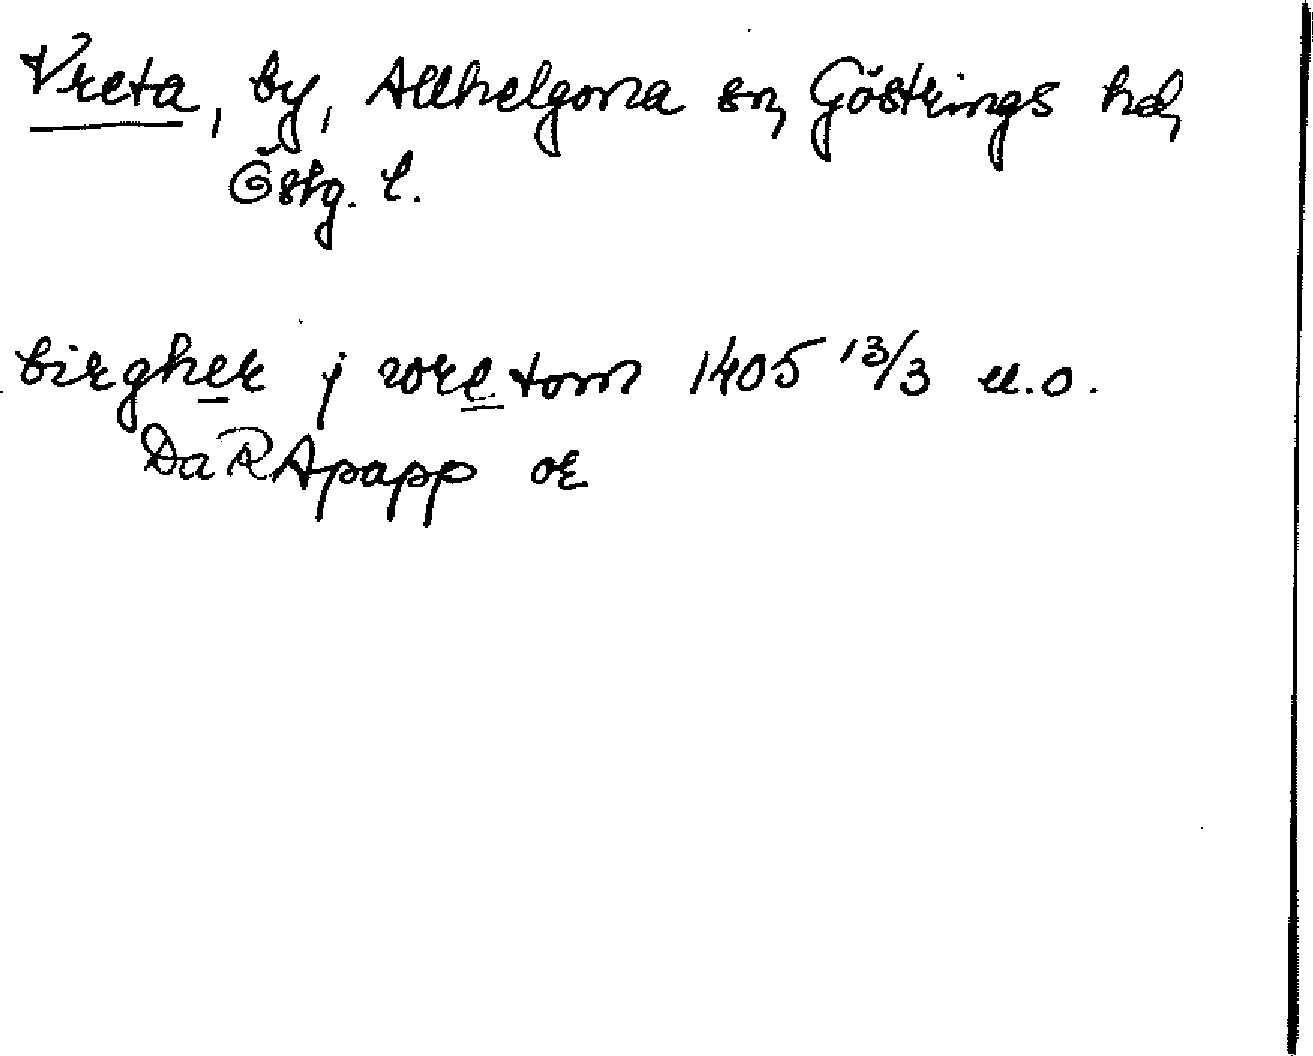 Vreta, by, Allhelgona sn, Göstrings hd,
Östg. l.
birgher j wretom 1405 13/3 u.o.
Da RApapp or